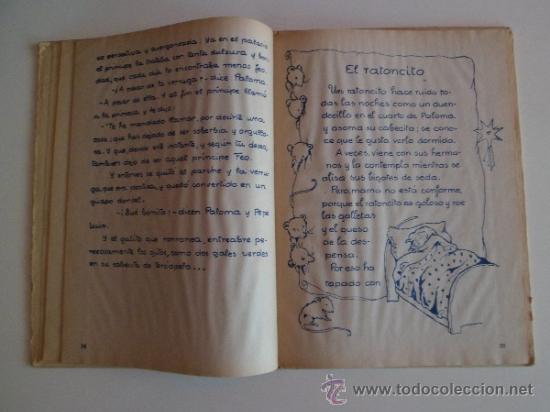 es pensativa y avergonzada. Ya en el palacio
el príncipe la habla con tanta dulzura y bon-
dad, que cada día lo encontraba menos feo.
-¿A pesar de la verruga?- dice Paloma.
-A pesar de ella. Y al fin el príncipe llamó
a la princesa y le dijo:
-Te he mandado llamar, por decirte una
cosa; que has dejado de ser soberbia y orgullo-
sa. Y que, desde este instante, y según tu deseo,
también dejo de ser aquel príncipe Feo.
Y entonces se quitó el parche y la verru-
ga que era postiza, y quedó convertido en un
guapo doncel.
-¡Qué bonito!- dicen Paloma y Pepe
Luis.
Y el gatito que ronronea, entreabre pe-
rezosamente los ojitos, como dos gotes verdes
en su cabecita de terciopelo...
El ratoncito
Un ratoncito hace ruido to-
das las noches como un duen-
decillo en el cuarto de Paloma,
y asoma su cabecita; se cono-
ce que le gusta verla dormida.
A veces, viene con sus herma-
nos y la contempla mientras se
alisa sus bigotes de seda.
Pero, mamá no está conforme,
porque el ratoncito es goloso y roe
las galletas
y el queso
de la des-
pensa.
Por eso ha
tapado con
www.todocoleccion.net